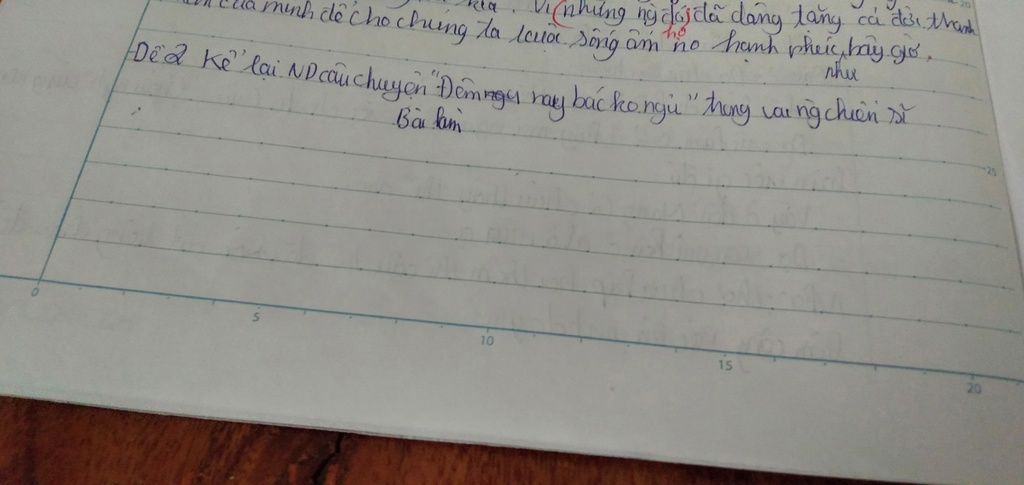 của mình để cho chúng ta cuộc sống ấm no hạnh phúc, bây giờ,
vì những ng đã dâng tặng cả đời thanh
họ
như
Đề 2 Kể lại ND câu chuyện "Đêm nay bác ko ngủ" trong vai ng chiến sĩ
Bài làm
25
0
5
10
15
20